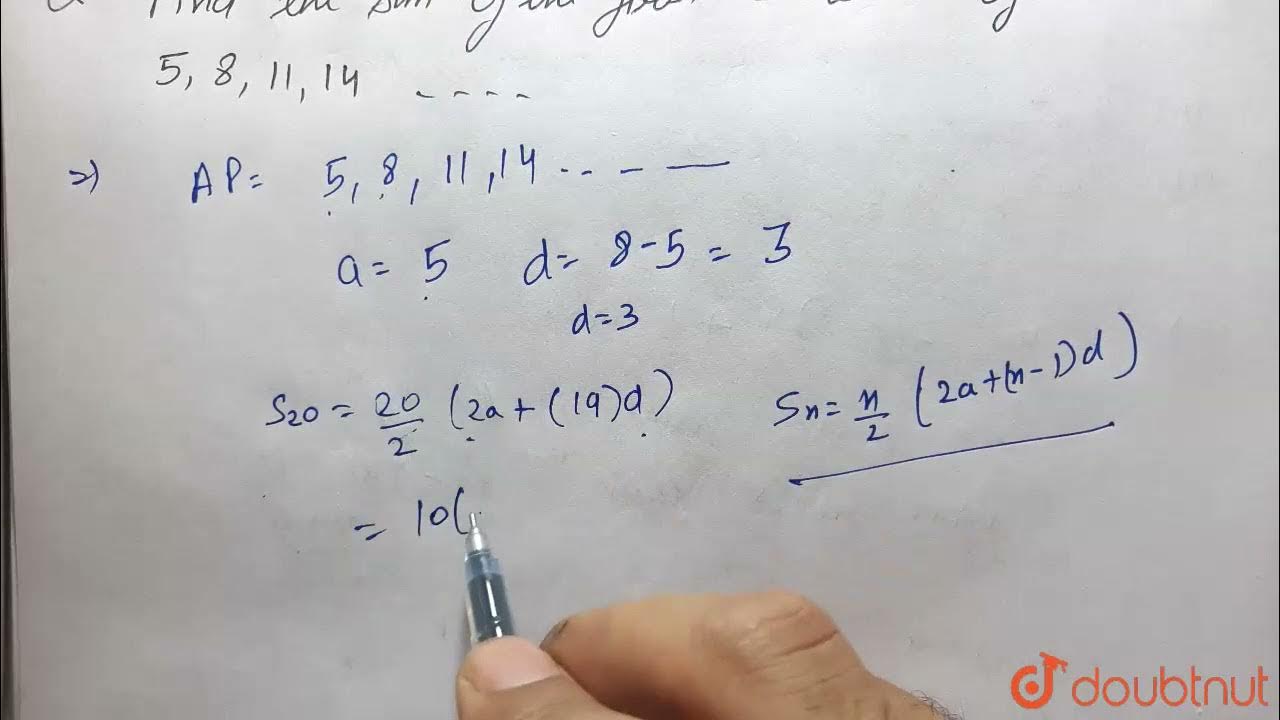 Find the sum of the
5, 8, 11, 14 - - - -
=>) AP= 5, 8, 11, 14 - - - —
a = 5 d= 8-5 = 3
d=3
S20 = 20/2 (2a + (19)d)
Sn= n/2 (2a+(n-1)d)
= 10(
doubtnut